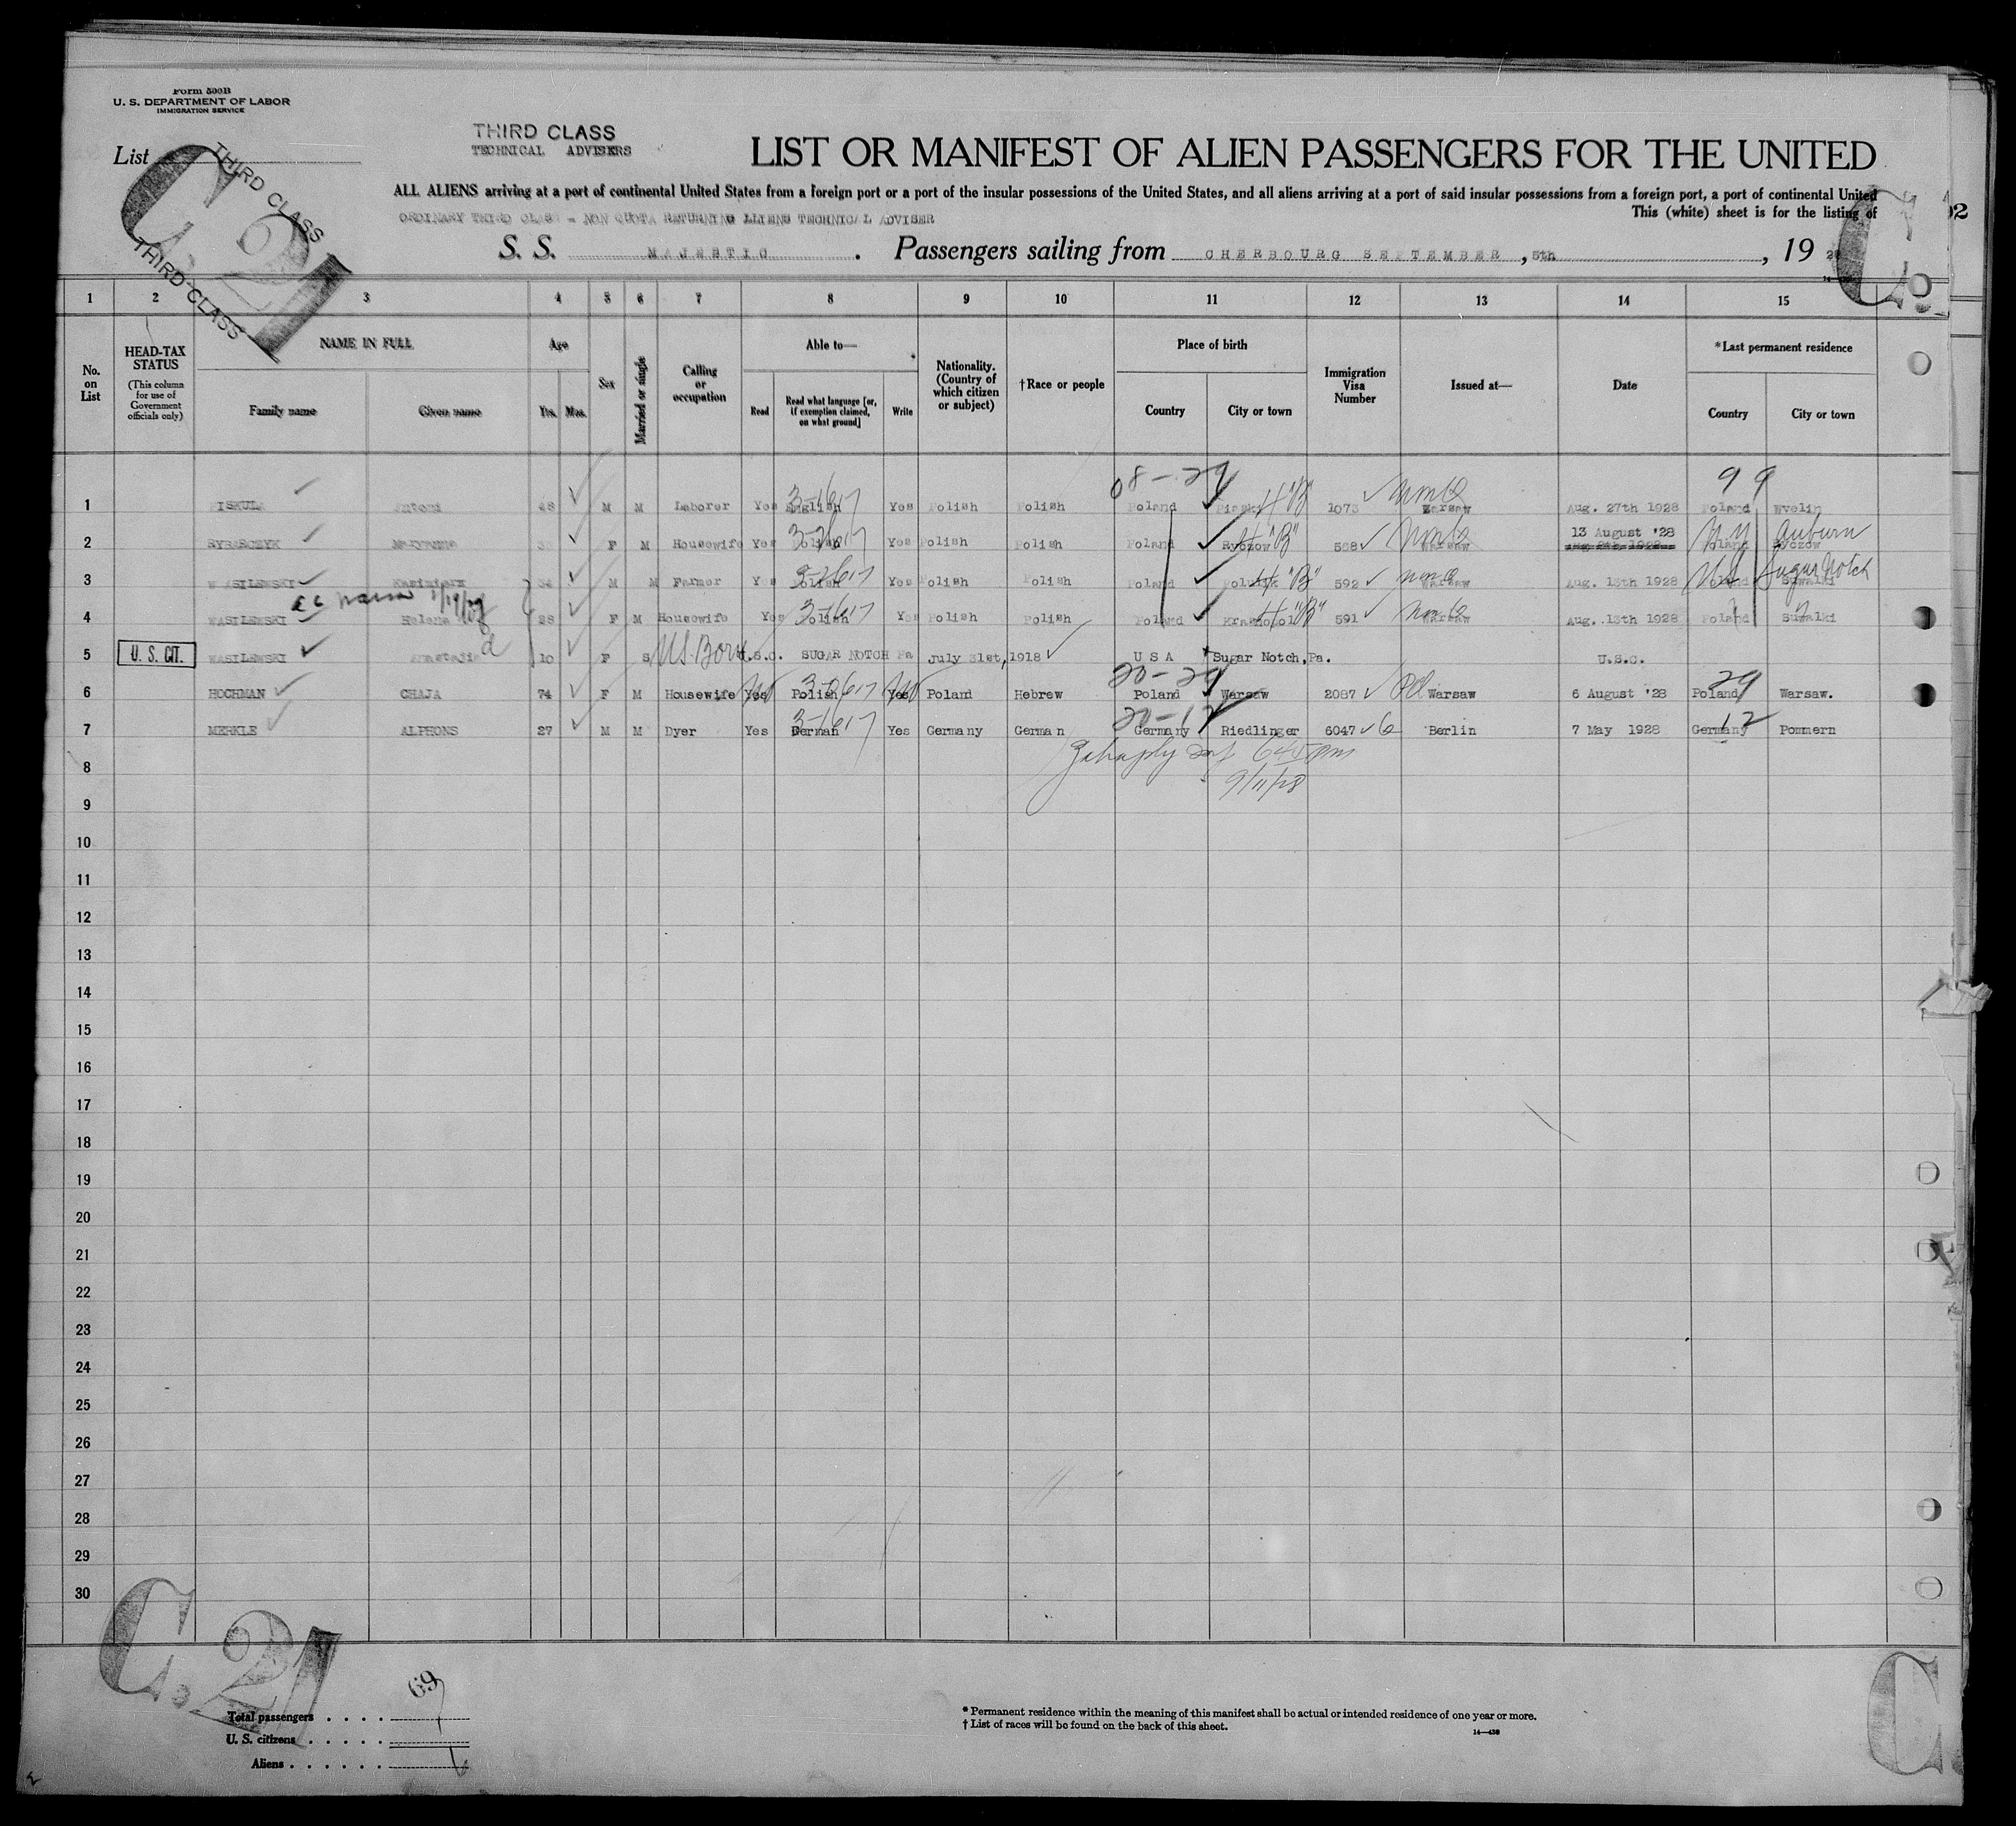 Form 500B
U. S. DEPARTMENT OF LABOR
IMMIGRATION SERVICE
List
THIRD CLASS
THIRD CLASS
C. 21
THIRD CLASS
TECHNICAL ADVISERS
LIST OR MANIFEST OF ALIEN PASSENGERS FOR THE UNITED
ALL ALIENS arriving at a port of continental United States from a foreign port or a port of the insular possessions of the United States, and all aliens arriving at a port of said insular possessions from a foreign port, a port of continental United
ORDINARY THIRD CLASS = NON QUOTA RETURNING ALIENS TECHNICAL ADVISER
This (white) sheet is for the listing of
S. S. MAJESTIC . Passengers sailing from CHERBOURG SEPTEMBER , 5th , 19 28
1 2 3 4 5 6 7 8 9 10 11 12 13 14 15
No. on List
HEAD-TAX STATUS
(This column for use of Government officials only)
NAME IN FULL
Family name Given name
Age
Yrs. Mos.
Sex
Married or single
Calling or occupation
Able to—
Read
Read what language [or, if exemption claimed, on what ground]
Write
Nationality. (Country of which citizen or subject)
†Race or people
Place of birth
Country City or town
Immigration Visa Number
Issued at—
Date
*Last permanent residence
Country City or town
08-29 99
1 Antoni 48 M M Laborer Yes English Yes Polish Polish Poland 1073 Warsaw Aug. 27th 1928 Poland
2 RYBARCZYK F M Housewife Yes Polish Yes Polish Polish Poland Ryczow 588 Warsaw 13 August '28 Poland Ryczow
N.Y. Auburn
3 WASILEWSKI Kazimierz M M Farmer Yes Polish Yes Polish Polish Poland 592 Warsaw Aug. 13th 1928 Poland Suwalki
Sugar Notch
4 WASILEWSKI Helena 28 F M Housewife Yes Polish Yes Polish Polish Poland 591 Warsaw Aug. 13th 1928 Poland Suwalki
5 U. S. CIT. WASILEWSKI Anastazia 10 F S US Born U.S.C. SUGAR NOTCH Pa July 31st, 1918 U S A Sugar Notch, Pa. U.S.C.
20-29 29
6 HOCHMAN CHAJA 74 F M Housewife Yes Polish Yes Poland Hebrew Poland Warsaw 2087 Warsaw 6 August '28 Poland Warsaw.
20-12 12
7 MERKLE ALPHONS 27 M M Dyer Yes German Yes Germany German Germany Riedlinger 6047 Berlin 7 May 1928 Germany Pommern
9/11/28
8
9
10
11
12
13
14
15
16
17
18
19
20
21
22
23
24
25
26
27
28
29
30
C. 21
69
Total passengers . . . . 7
U. S. citizens . . . . .
Aliens . . . . . . 6
* Permanent residence within the meaning of this manifest shall be actual or intended residence of one year or more.
† List of races will be found on the back of this sheet.
14—430
C